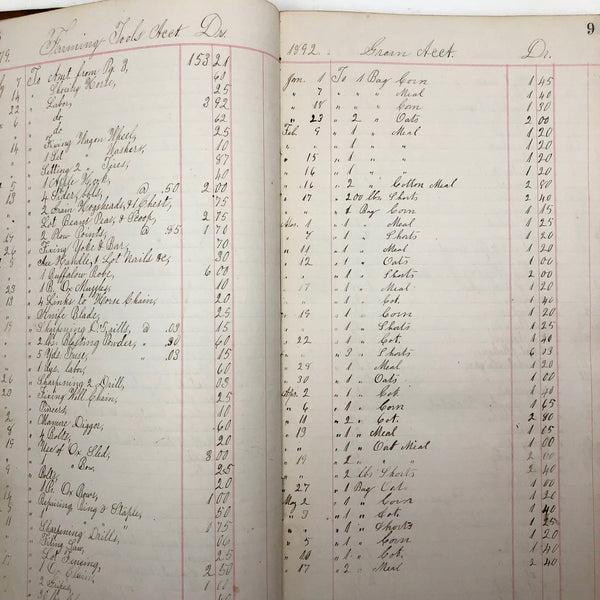 79.
Farming Tools Acct Dr.
7 To Amt from Pg. 8, 153 21
14 " Shoeing Horse, 60
" 25
22 " Labor, 3 92
6 " do 62
" do 25
14 " Fixing Wagon Wheel, 10
" 1 Set " Washers, 87
" Setting 2 " Tires, 40
5 " @ .50 2 00
13 " 75
" 2 Grain Hogsheads, & 1 Chest,
" Lot Bean Peas, & Scoop, 2 75
" 2 Plow Points, @ .85 1 70
" Fixing Yoke & Bar, 70
5 " Axe Handle, 1 Lot Nails &c, 30
" 1 Buffalow Robe, 6 00
23 " 1 Pr. Ox Muzzles, 10
13 " 4 Links to Horse Chain, 20
" Knife Blade, 25
19 " Sharpening Drills, @ .03 15
" 2 lbs. Blasting Powder, " .30 60
" 5 Yds. Fuse, " .03 15
" 1 Dys. labor, 60
26 " Sharpening 2 Drill, 03
20 " Fixing Well Chain, 25
" Pincers, 10
2 " Manure Digger, 60
8 " 4 Bolts, 20
19 " Use of Ox Sled, 3 00
" " " Bow, 25
9 " Bolts, 20
" 1 Pr. Ox Bows, 1 00
" Repairing Ring & Staple, 50
11 " Sharpening Drills, 1 75
" Filing Saw, 06
" Lot Fencing, 25
17 " 2 50
9
1892 Grain Acct. Dr.
Jan. 1 To 1 Bag Corn 1 45
" 7 " " " Meal 1 40
" 18 " " " Corn 1 30
" 23 " 2 " Oats 2 00
Feb 9 " 1 " Meal 1 20
" " 1 " " 1 20
" 15 " 1 " " 1 20
" 16 " 1 " " 1 20
" 16 " 2 " Cotton Meal 2 80
" 17 " 200 lbs Shorts 2 40
" " 1 Bag Corn 1 15
Mar. 1 " 1 " Meal 1 25
" 7 " 1 " Shorts 1 20
" 11 " 1 " Meal 1 20
" 12 " 1 " Oats 1 00
" " " Shorts 2 00
" 17 " 1 " Meal 1 20
" " 1 " Cot. 1 40
" 19 " 1 " Corn 1 20
" " 1 " Shorts 1 25
" 22 " 1 " Cot. 1 40
" " 3 " Shorts 6 13
" 28 " 1 " Meal 1 20
" 30 " 1 " Oats 1 00
Apr. 2 " 1 " Cot 1 40
" 6 " 1 " Corn 1 65
" 11 " 2 " Cot. 2 80
" 13 " 1 " Meal 1 05
" " 1 " Oat Meal 2 00
" 19 " 2 " " " 2 00
" " 2 lbs Shorts 2 40
" 27 " 1 Bag Oats 1 00
May 2 " " " Corn 1 20
" 3 " 1 " Cot. 1 40
" " " " Shorts 1 25
" 5 " 1 " Corn 1 20
" 10 " 1 " Cot. 1 40
" 17 " 2 " Meal 2 40